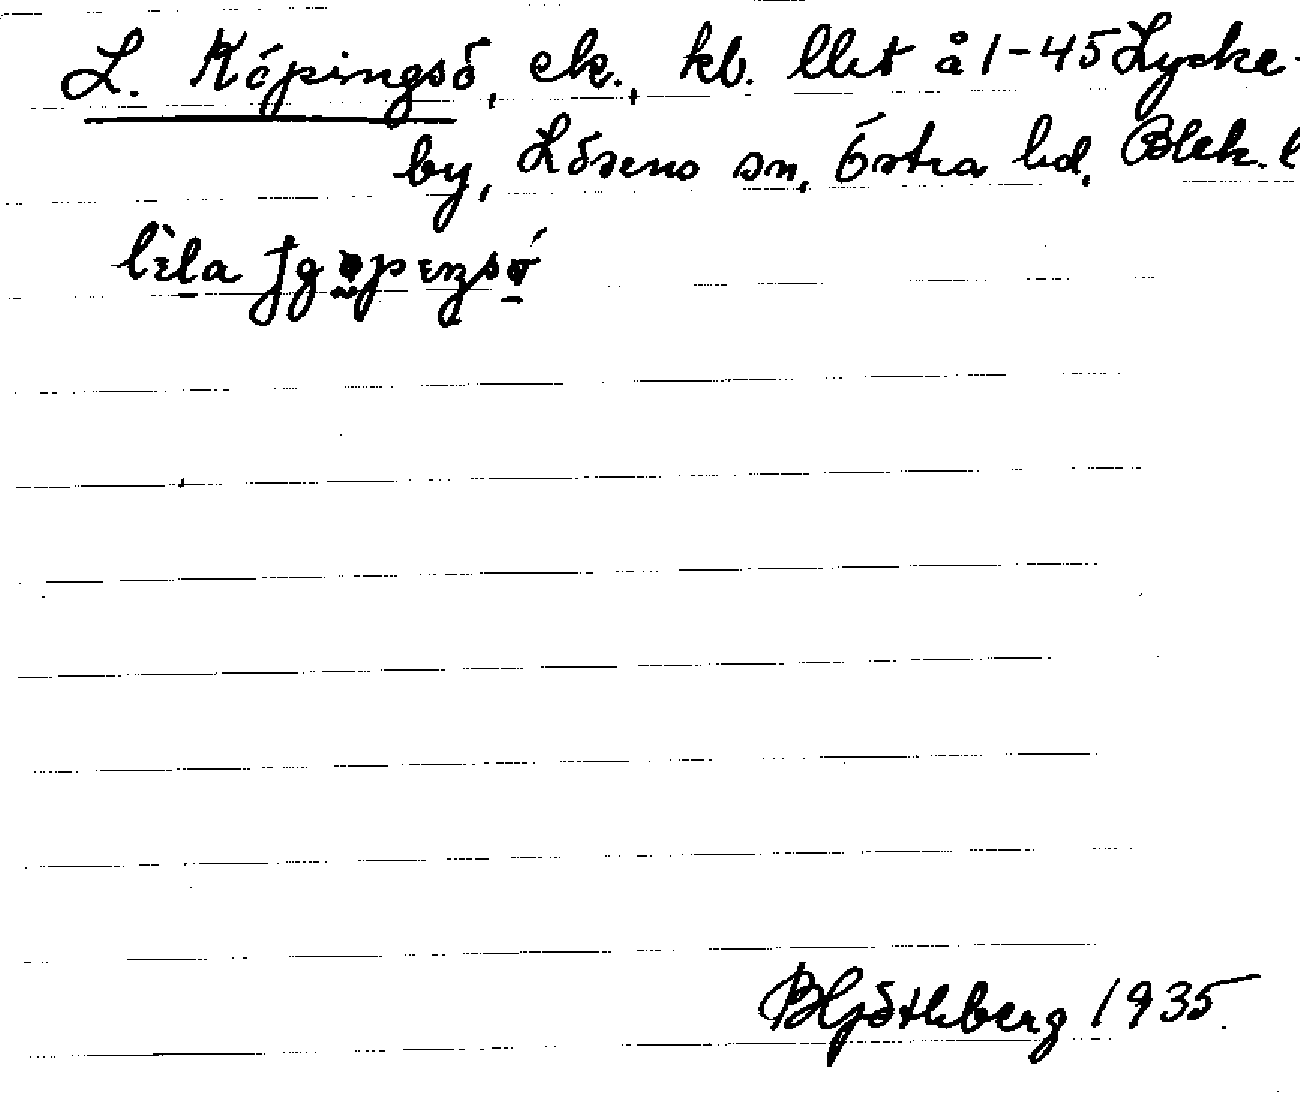 L. Köpingsö, ek., kb. llet å 1-45 Lycke-
by, Lösens sn, Östra hd. Blek. l
lila
BHjöthberg 1935.